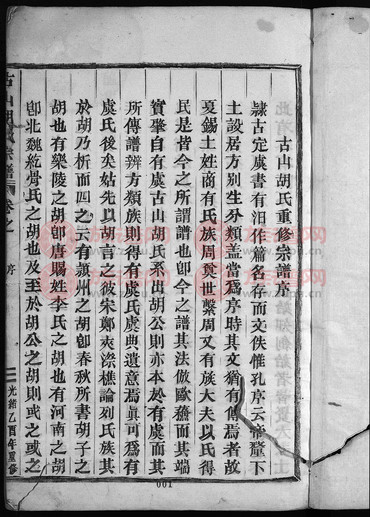 古山胡氏重修宗譜序
隸古定虞書有汨作篇名存而文佚惟孔序云帝釐下
土設居方別生分類蓋當為序時其文猶有傳焉者故
夏錫土姓商有氏族周奠世繫周又有族大夫以氏得
民是皆今之所謂譜也卽今之譜其法倣歐蘇而其端
實肇自有虞古山胡氏系出胡公則亦本於有虞而其
所傳譜辨方類族則得有虞氏虞典遺意焉眞可為有
虞氏後矣姑先以胡言之彼宋鄭夾漈樵論列氏族其
於胡乃析而四之云有潁州之胡卽春秋所書胡子之
胡也有樂陵之胡卽唐賜姓李氏之胡也有河南之胡
卽北魏紇骨氏之胡也及至於胡公之胡則或之或之
古山胡氏宗譜
卷之
序
光緒乙酉年重修
001